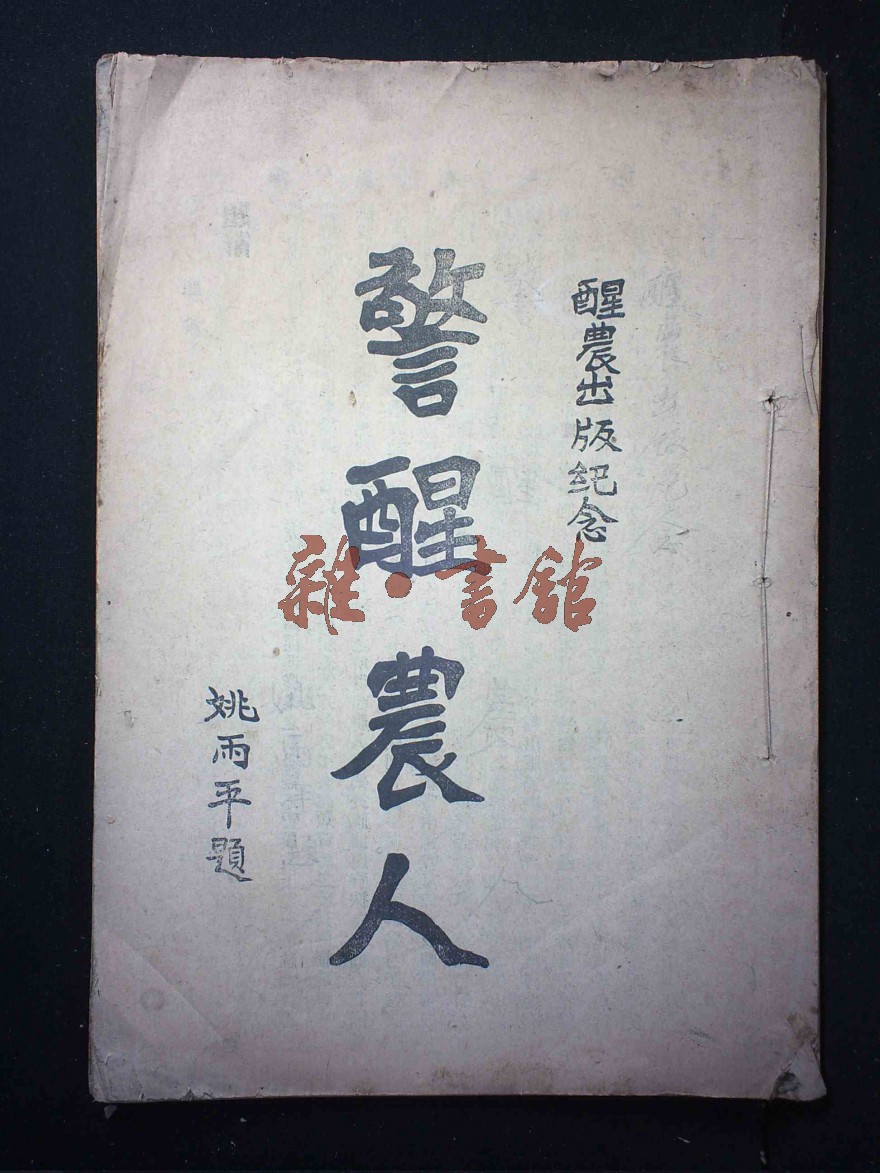 醒農出版紀念
警醒農人
姚雨平題
雜·書館